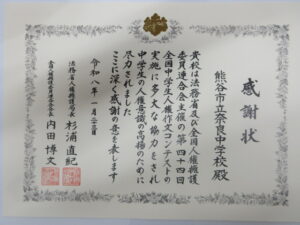 感謝状
熊谷市立奈良中学校殿
貴校は法務省及び全国人権擁護
委員連合会主催の第四十四回
全国中学生人権作文コンテストの
実施に多大な協力をされ
中学生の人権意識の高揚のために
尽力されました
ここに深く感謝の意を表します
令和 年一月二十三日
法務省人権擁護局長 杉浦直紀
全国人権擁護委員連合会会長 内田博文